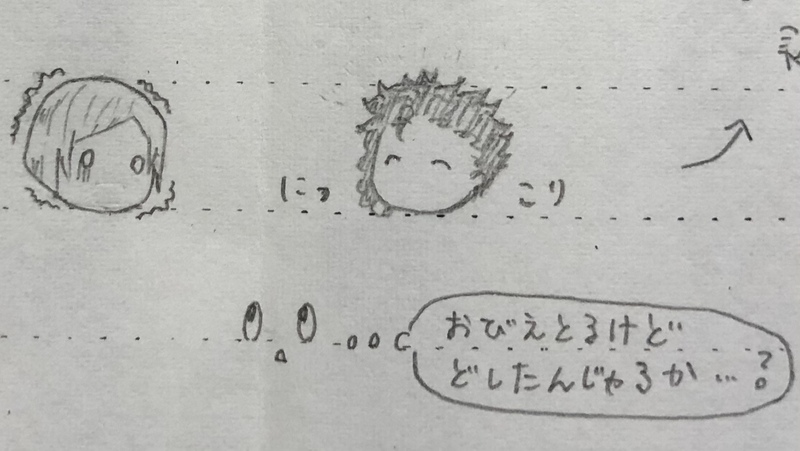 にっ こり
おびえとるけど
どしたんじゃろか…?